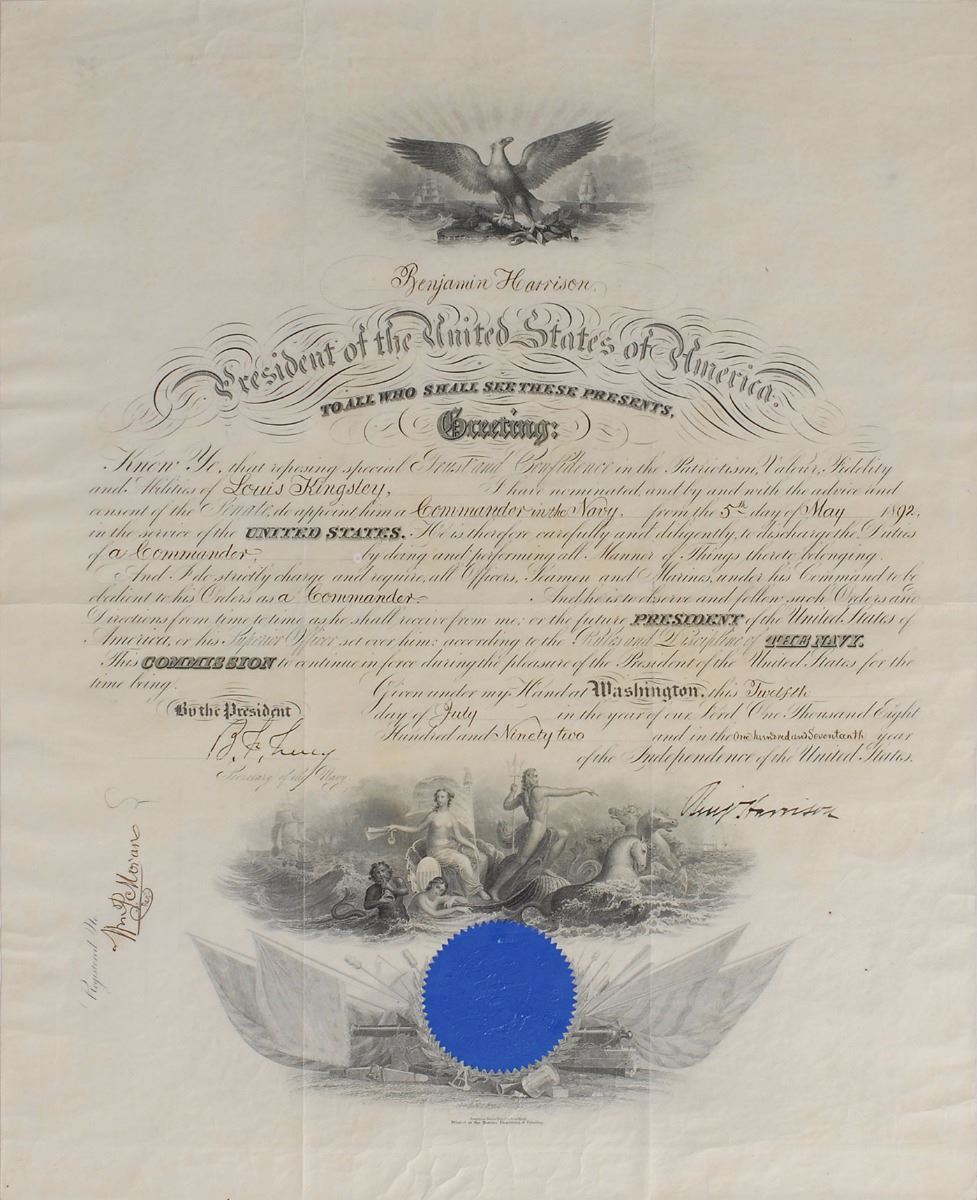 Benjamin Harrison,
President of the United States of America.
TO ALL WHO SHALL SEE THESE PRESENTS,
Greeting:
Know Ye, that reposing special Trust and Confidence in the Patriotism, Valour, Fidelity
and Abilities of Louis Kingsley, I have nominated, and by and with the advice and
consent of the Senate, do appoint him a Commander in the Navy, from the 5th day of May 1892,
in the service of the UNITED STATES. He is therefore carefully and diligently, to discharge the Duties
of a Commander, by doing and performing all Manner of Things thereto belonging.
And I do strictly charge and require, all Officers, Seamen and Marines, under his Command to be
obedient to his Orders as a Commander. And he is to observe and follow such Orders and
Directions from time to time as he shall receive from me, or the future PRESIDENT of the United States of
America, or his Superior Officer set over him, according to the Rules and Discipline of THE NAVY.
This COMMISSION to continue in force during the pleasure of the President of the United States for the
time being.
Given under my Hand at Washington, this Twelfth
day of July in the year of our Lord One Thousand Eight
Hundred and Ninety two and in the One hundred and Seventeenth year
of the Independence of the United States.
By the President
Secretary of the Navy.
Benj Harrison
Registered No.
Wm P Moran
Printed at the Bureau, Engraving & Printing.